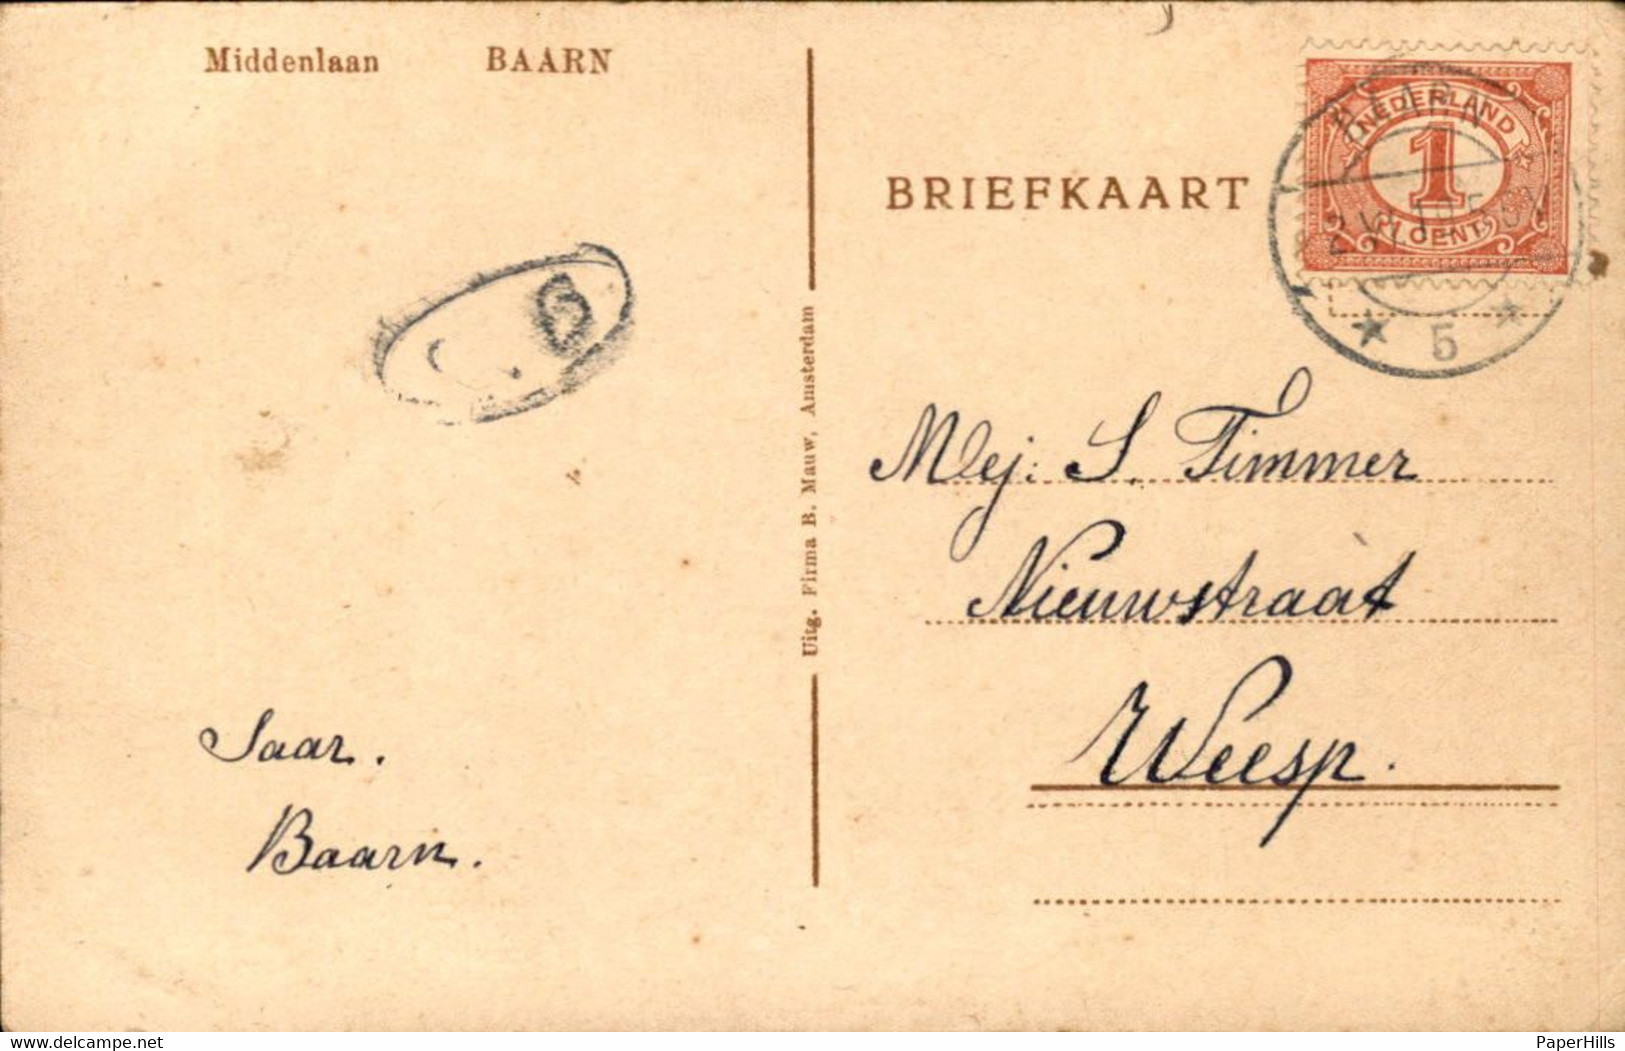 Middenlaan BAARN
BRIEFKAART
NEDERLAND
1
CENT
BAARN
5
Uitg. Firma B. Mauw, Amsterdam
Mej: S. Timmer
Nieuwstraat
Weesp.
Saar.
Baarn.
www.delcampe.net
PaperHills